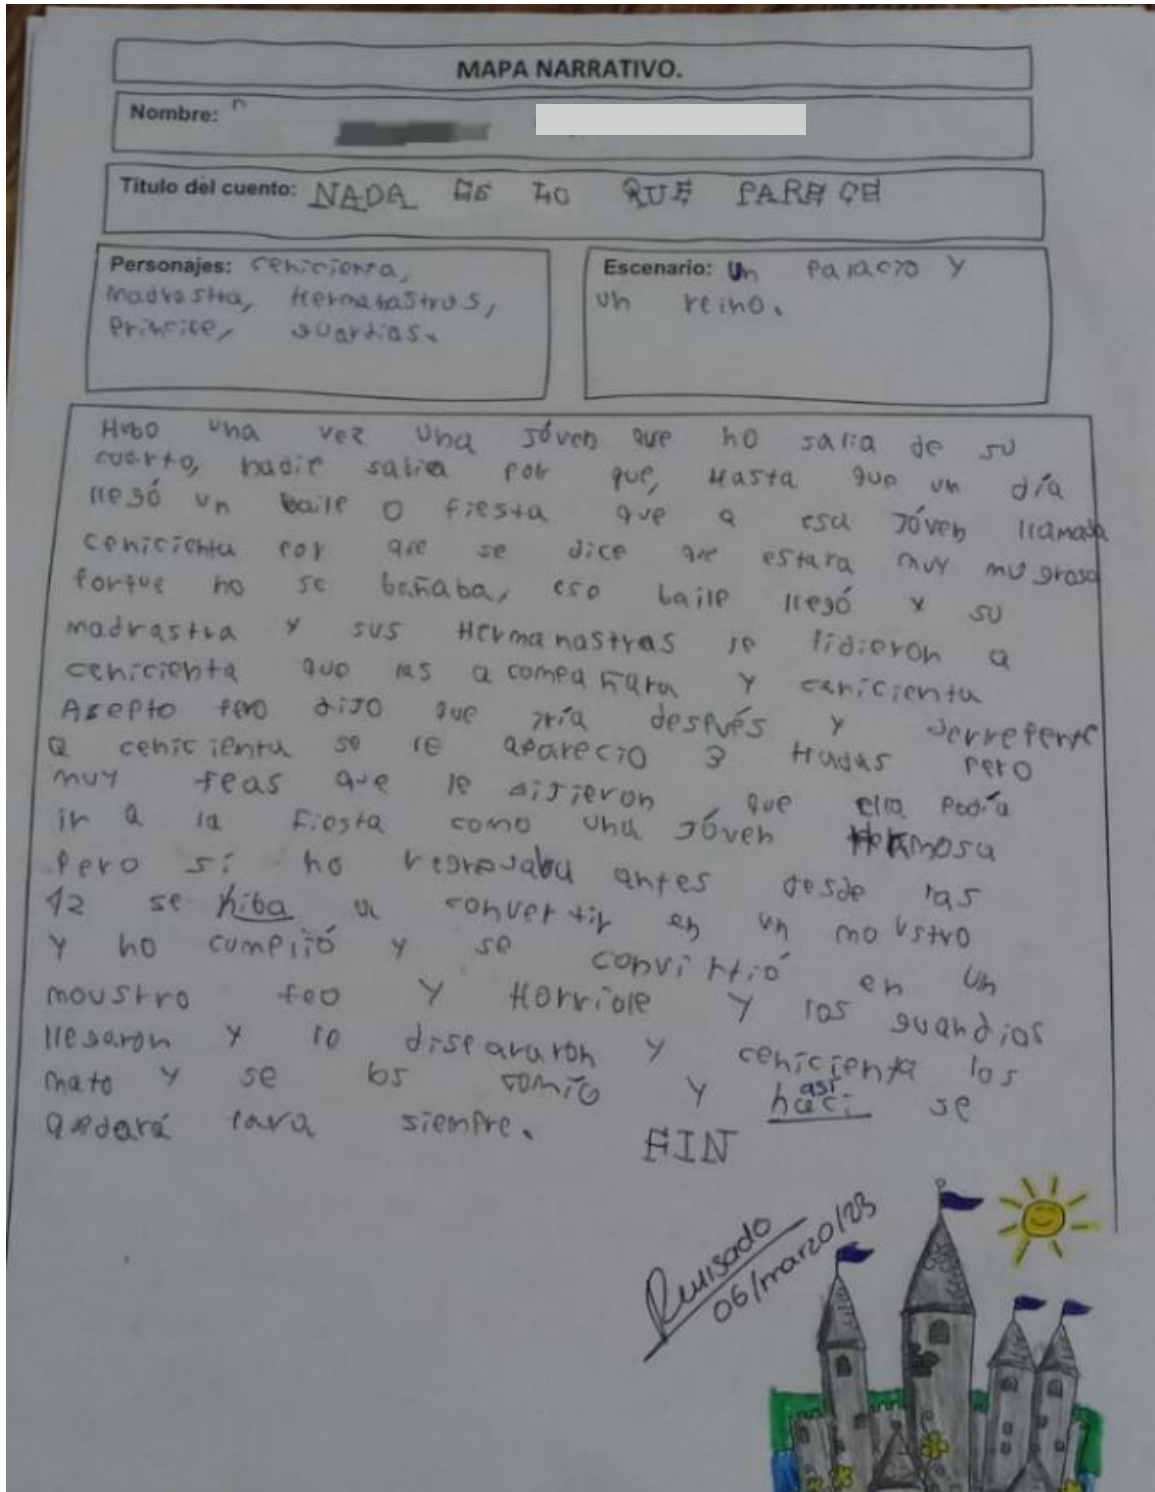 MAPA NARRATIVO.
Nombre:
Título del cuento: NADA ES LO QUE PARECE
Personajes: cenicienta,
Madrastra, Hermatastras,
Principe, guardias.
Escenario: Un Palacio y
un reino.
Hubo una vez una jóven que no salia de su
cuarto, nadie salia por que, Hasta que un día
llegó un baile o fiesta que a esa Jóven llamada
cenicienta por que se dice que estara muy mugrosa
Porque no se bañaba, ese baile llegó y su
madrastra y sus Hermanastras le pidieron a
cenicienta que las a compañara y cenicienta
Asepto pero dijo que iría después y derrepente
a cenicienta se le aparecio 3 Hadas pero
muy feas que le dijieron que ella podía
ir a la fiesta como una Jóven Hermosa
Pero si no regresaba antes desde las
12 se hiba a convertir en un moustro
y no cumplió y se convirtió en un
moustro feo y Horrible y los guardias
llegaron y lo dispararon y cenicienta los
mato y se los comío y haci así se
quedará para siempre. FIN
Revisado
06/marzo/23